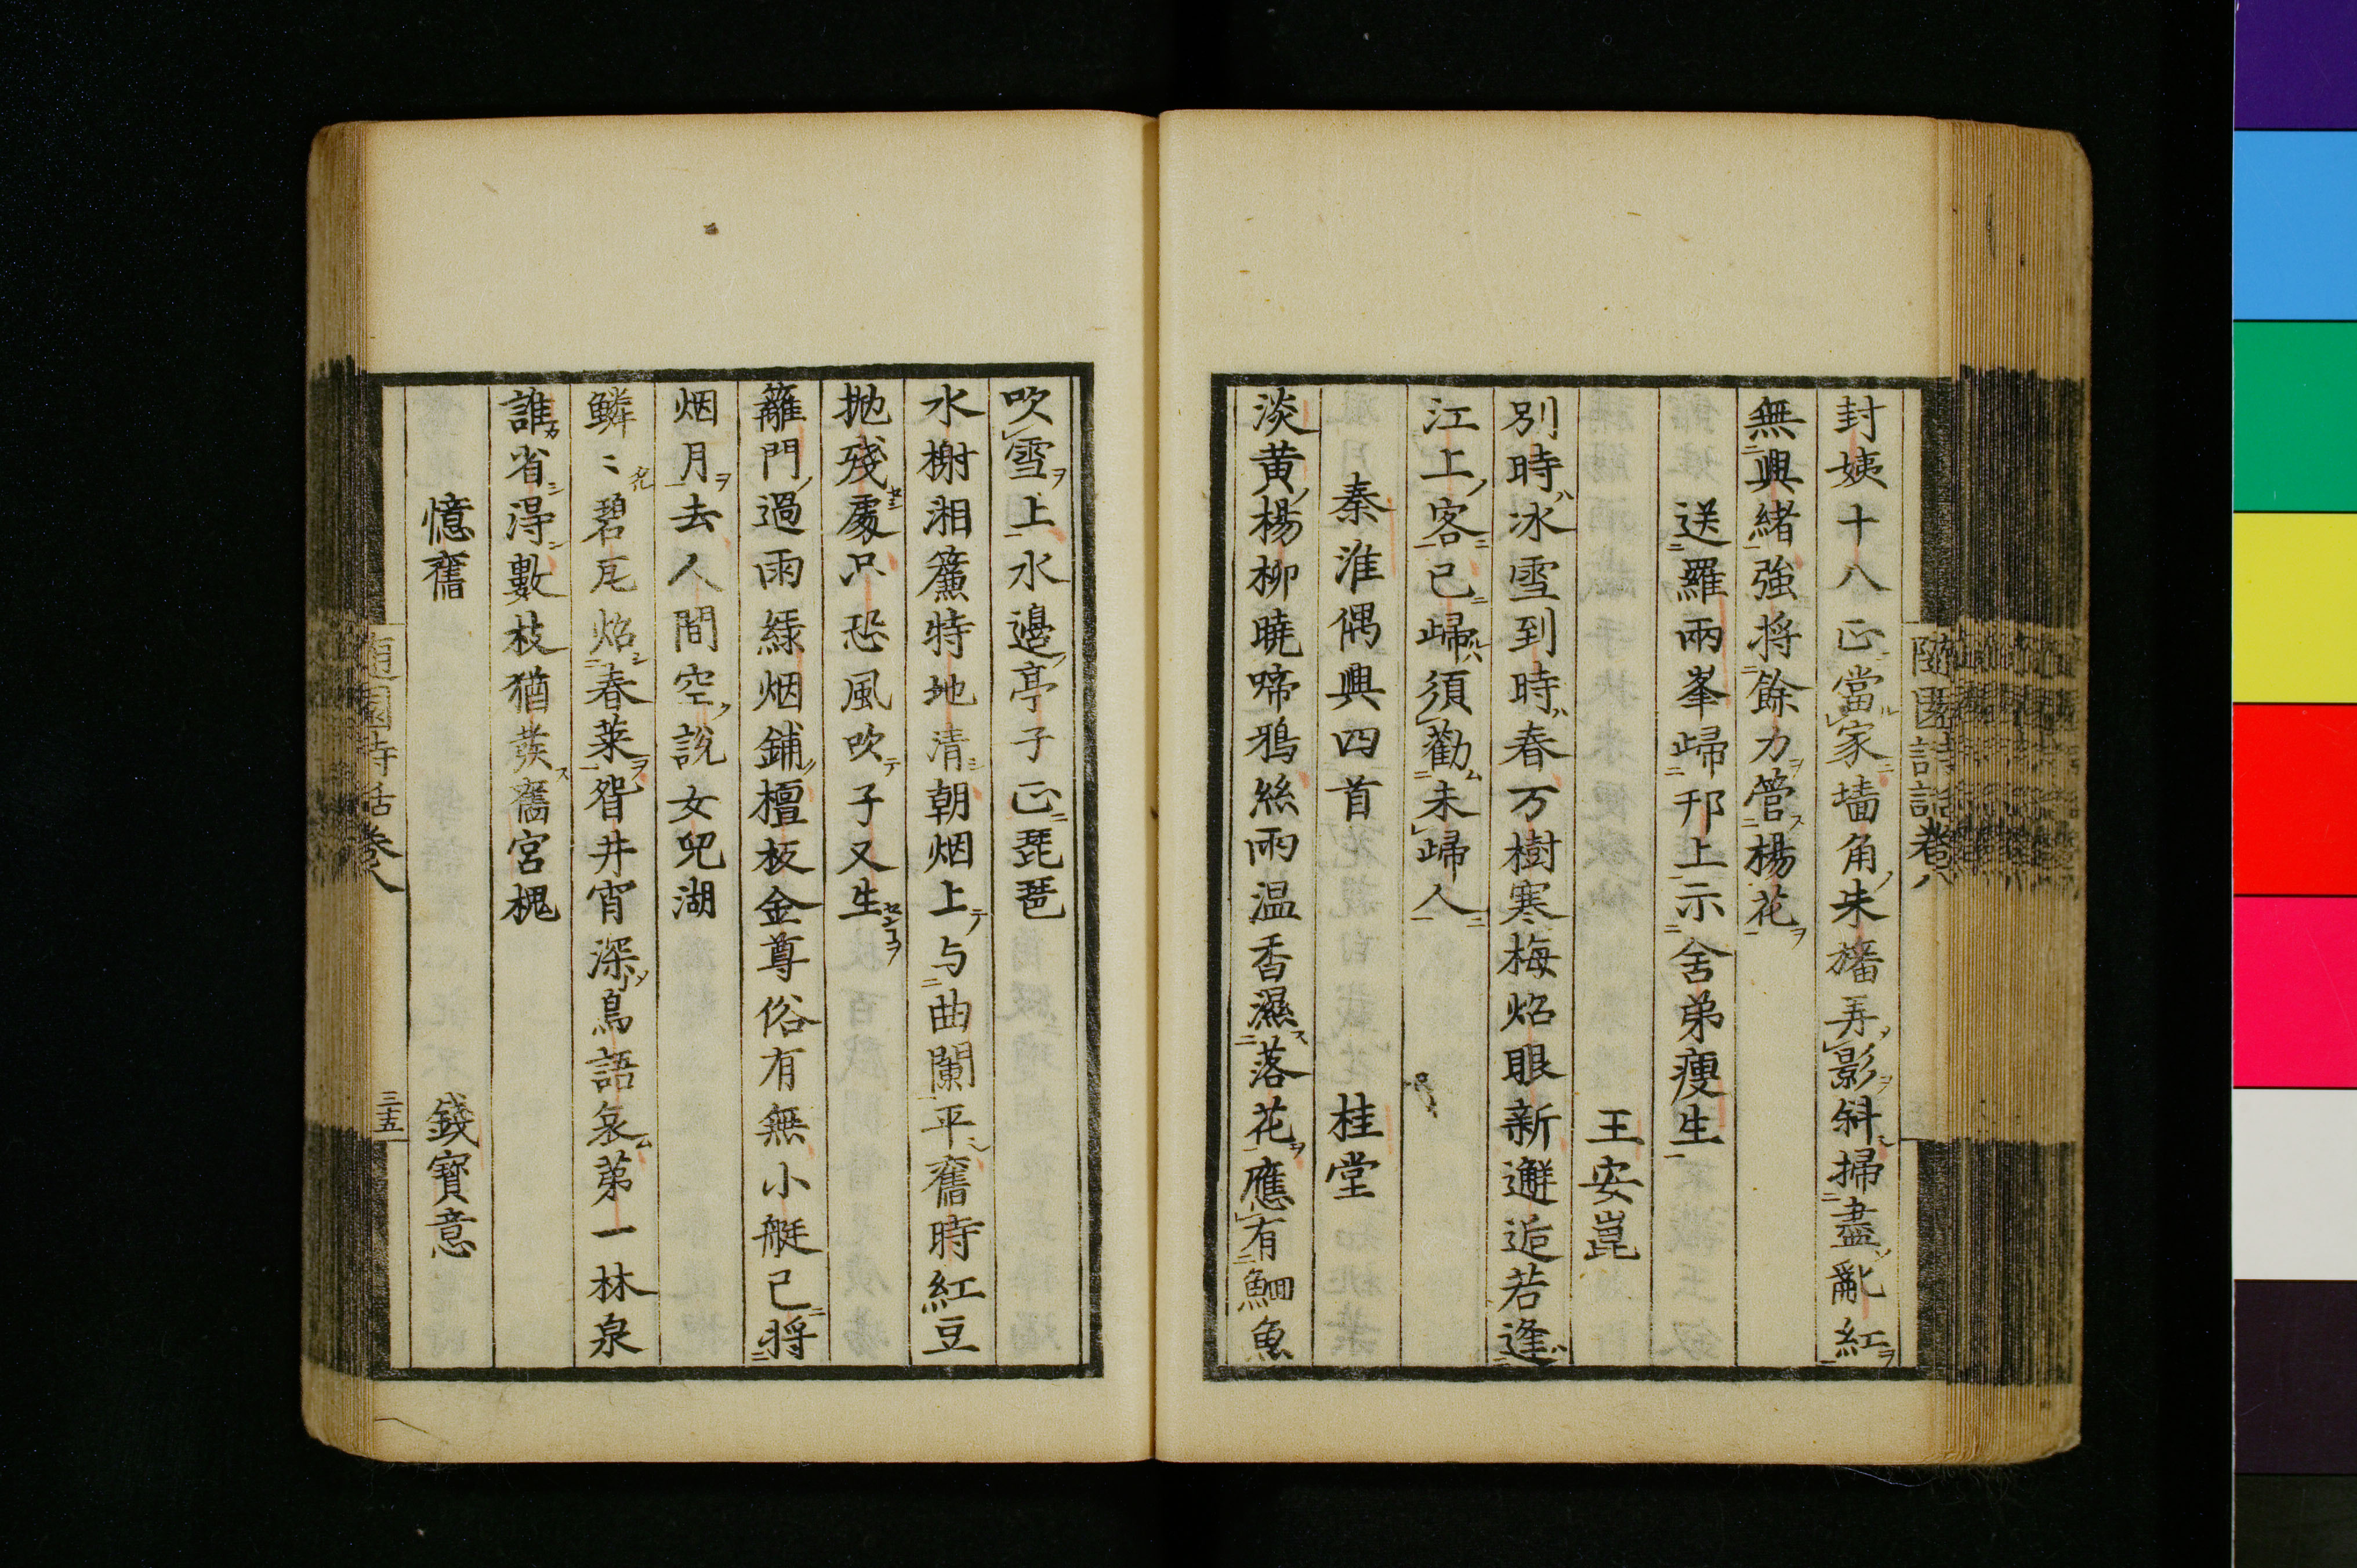 封姨十八正當家墻角朱旛弄影斜掃盡亂紅
無興緒強将餘力管楊花
送羅兩峯歸邗上示舍弟瘦生
王安崑
別時冰雪到時春万樹寒梅焰眼新邂逅若逢
江上客已歸須勸未歸人
秦淮偶興四首　桂堂
淡黄楊柳曉啼鴉絲雨温香濕落花應有鯝魚
隨園詩話卷八
吹雪上水邊亭子正琵琶
水榭湘簾特地清朝烟上与曲闌平舊時紅豆
抛殘處只恐風吹子又生
籬門過雨緑烟鋪檀板金尊俗有無小艇已将
烟月去人間空説女兒湖
鱗〻碧瓦焰春莱眢井宵深鳥語哀苐一林泉
誰省淂數枝猶羙舊宮槐
憶舊　錢寳意
隨園詩話卷八
三十五